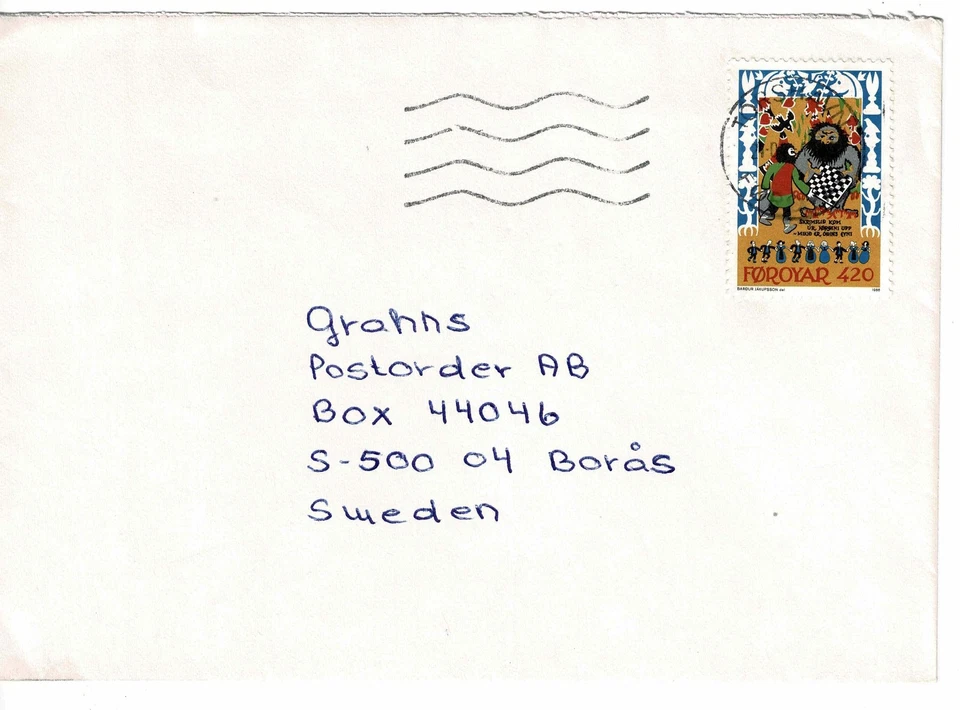 FØROYAR 420
BARÐUR JÁKUPSSON del
1986
Grahns
Postorder AB
Box 44046
S-500 04 Borås
Sweden